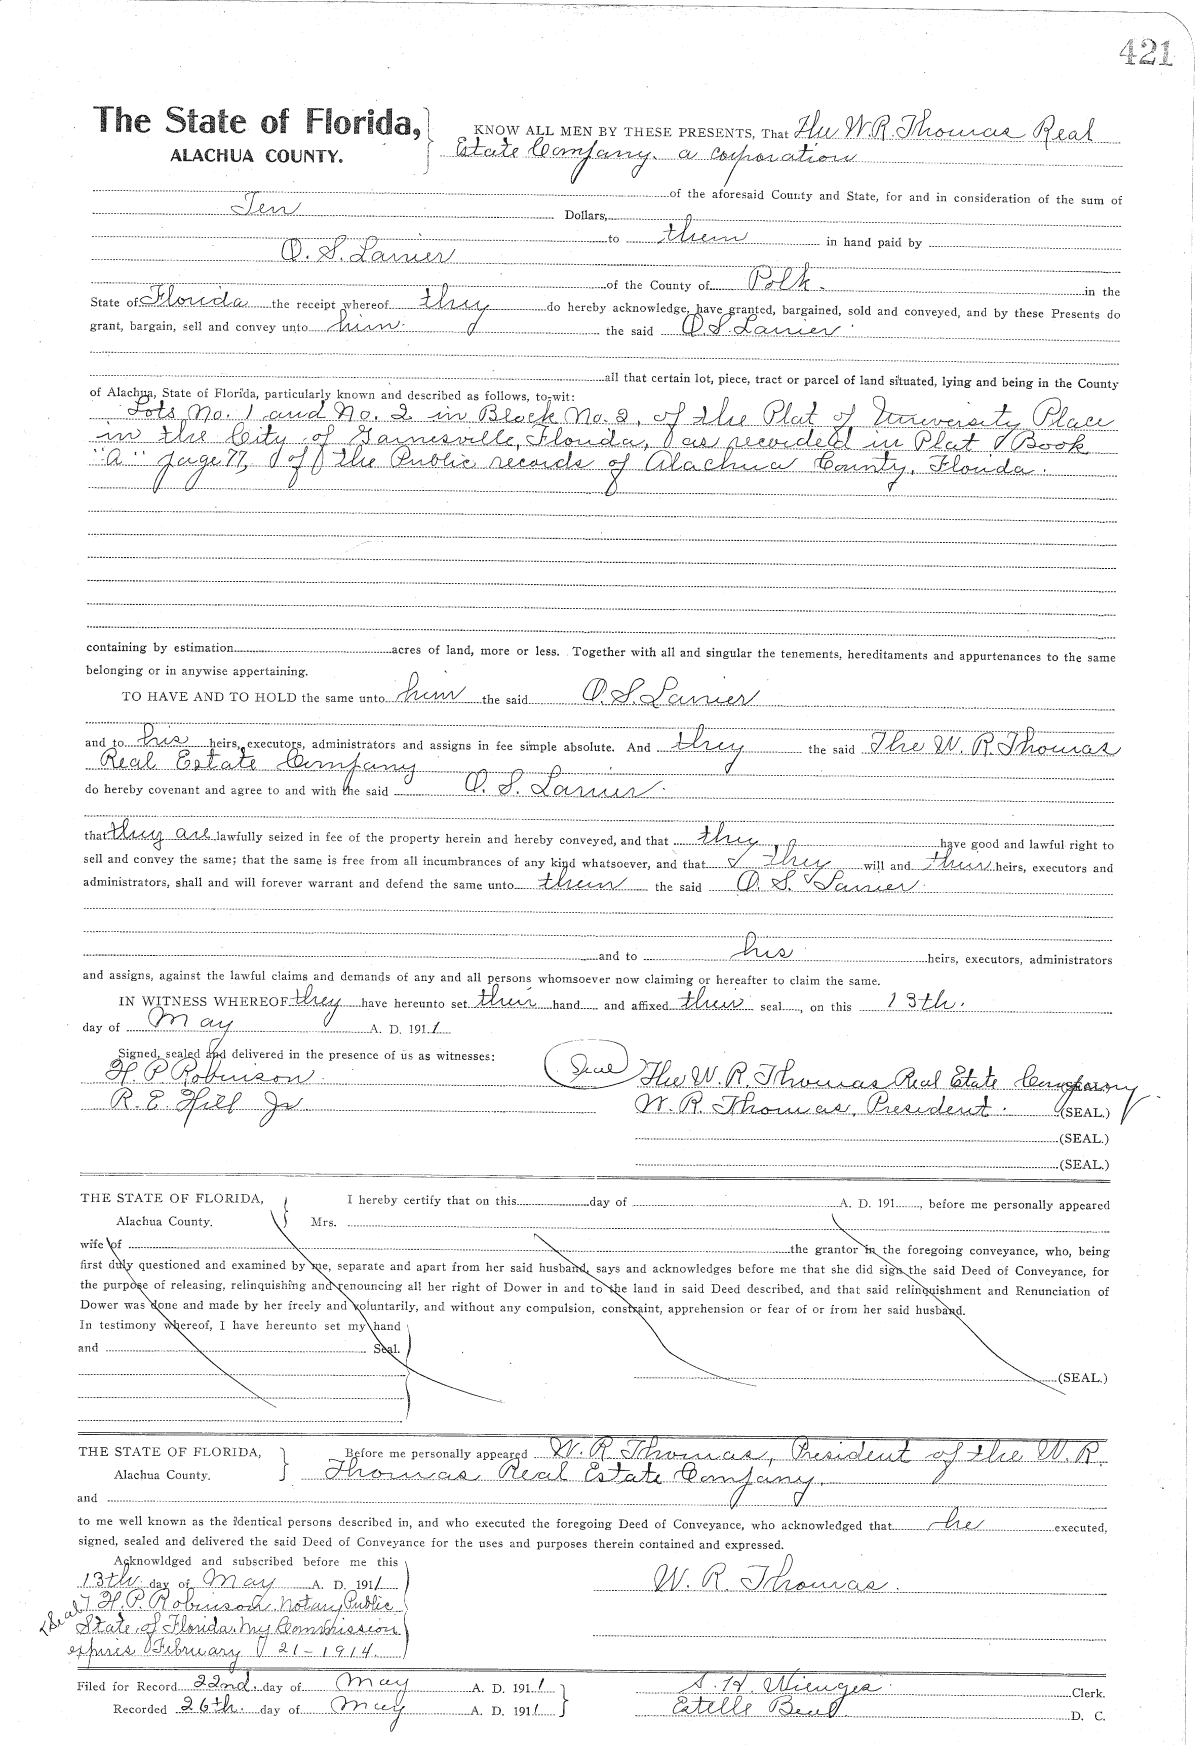 421
The State of Florida,
ALACHUA COUNTY.
KNOW ALL MEN BY THESE PRESENTS, That The W.R. Thomas Real
Estate Company. a corporation
of the aforesaid County and State, for and in consideration of the sum of
Ten Dollars,
to them in hand paid by
O. S. Lanier
of the County of Polk. in the
State of Florida the receipt whereof they do hereby acknowledge, have granted, bargained, sold and conveyed, and by these Presents do
grant, bargain, sell and convey unto him the said O. S. Lanier
all that certain lot, piece, tract or parcel of land situated, lying and being in the County
of Alachua, State of Florida, particularly known and described as follows, to-wit:
Lots No. 1 and No. 2 in Block No. 2, of the Plat of University Place
in the City of Gainesville, Florida, as recorded in Plat Book
"A" page 77, of the Public records of Alachua County, Florida.
containing by estimation acres of land, more or less. Together with all and singular the tenements, hereditaments and appurtenances to the same
belonging or in anywise appertaining.
TO HAVE AND TO HOLD the same unto him the said O. S. Lanier
and to his heirs, executors, administrators and assigns in fee simple absolute. And they the said The W. R. Thomas
Real Estate Company
do hereby covenant and agree to and with the said O. S. Lanier.
that they are lawfully seized in fee of the property herein and hereby conveyed, and that they have good and lawful right to
sell and convey the same; that the same is free from all incumbrances of any kind whatsoever, and that they will and their heirs, executors and
administrators, shall and will forever warrant and defend the same unto them the said O. S. Lanier.
and to his heirs, executors, administrators
and assigns, against the lawful claims and demands of any and all persons whomsoever now claiming or hereafter to claim the same.
IN WITNESS WHEREOF they have hereunto set their hand and affixed their seal, on this 13th.
day of May A. D. 1911
Signed, sealed and delivered in the presence of us as witnesses:
H. P. Robinson
R. E. Hill Jr
Seal The W. R. Thomas Real Estate Company
W. R. Thomas, President. (SEAL.)
(SEAL.)
(SEAL.)
THE STATE OF FLORIDA,
Alachua County.
I hereby certify that on this day of A. D. 191, before me personally appeared
Mrs.
wife of the grantor in the foregoing conveyance, who, being
first duly questioned and examined by me, separate and apart from her said husband, says and acknowledges before me that she did sign the said Deed of Conveyance, for
the purpose of releasing, relinquishing and renouncing all her right of Dower in and to the land in said Deed described, and that said relinquishment and Renunciation of
Dower was done and made by her freely and voluntarily, and without any compulsion, constraint, apprehension or fear of or from her said husband.
In testimony whereof, I have hereunto set my hand
and Seal.
(SEAL.)
THE STATE OF FLORIDA,
Alachua County.
Before me personally appeared W. R. Thomas, President of the W. R.
Thomas Real Estate Company,
and
to me well known as the identical persons described in, and who executed the foregoing Deed of Conveyance, who acknowledged that he executed,
signed, sealed and delivered the said Deed of Conveyance for the uses and purposes therein contained and expressed.
Acknowldged and subscribed before me this
13th day of May A. D. 1911
W. R. Thomas.
Seal H. P. Robinson Notary Public
State of Florida. My Commission
expires February 21 - 1914.
Filed for Record 22nd. day of May A. D. 1911
Recorded 26th. day of May A. D. 1911
S. H. Wienges Clerk.
Estelle Beal D. C.